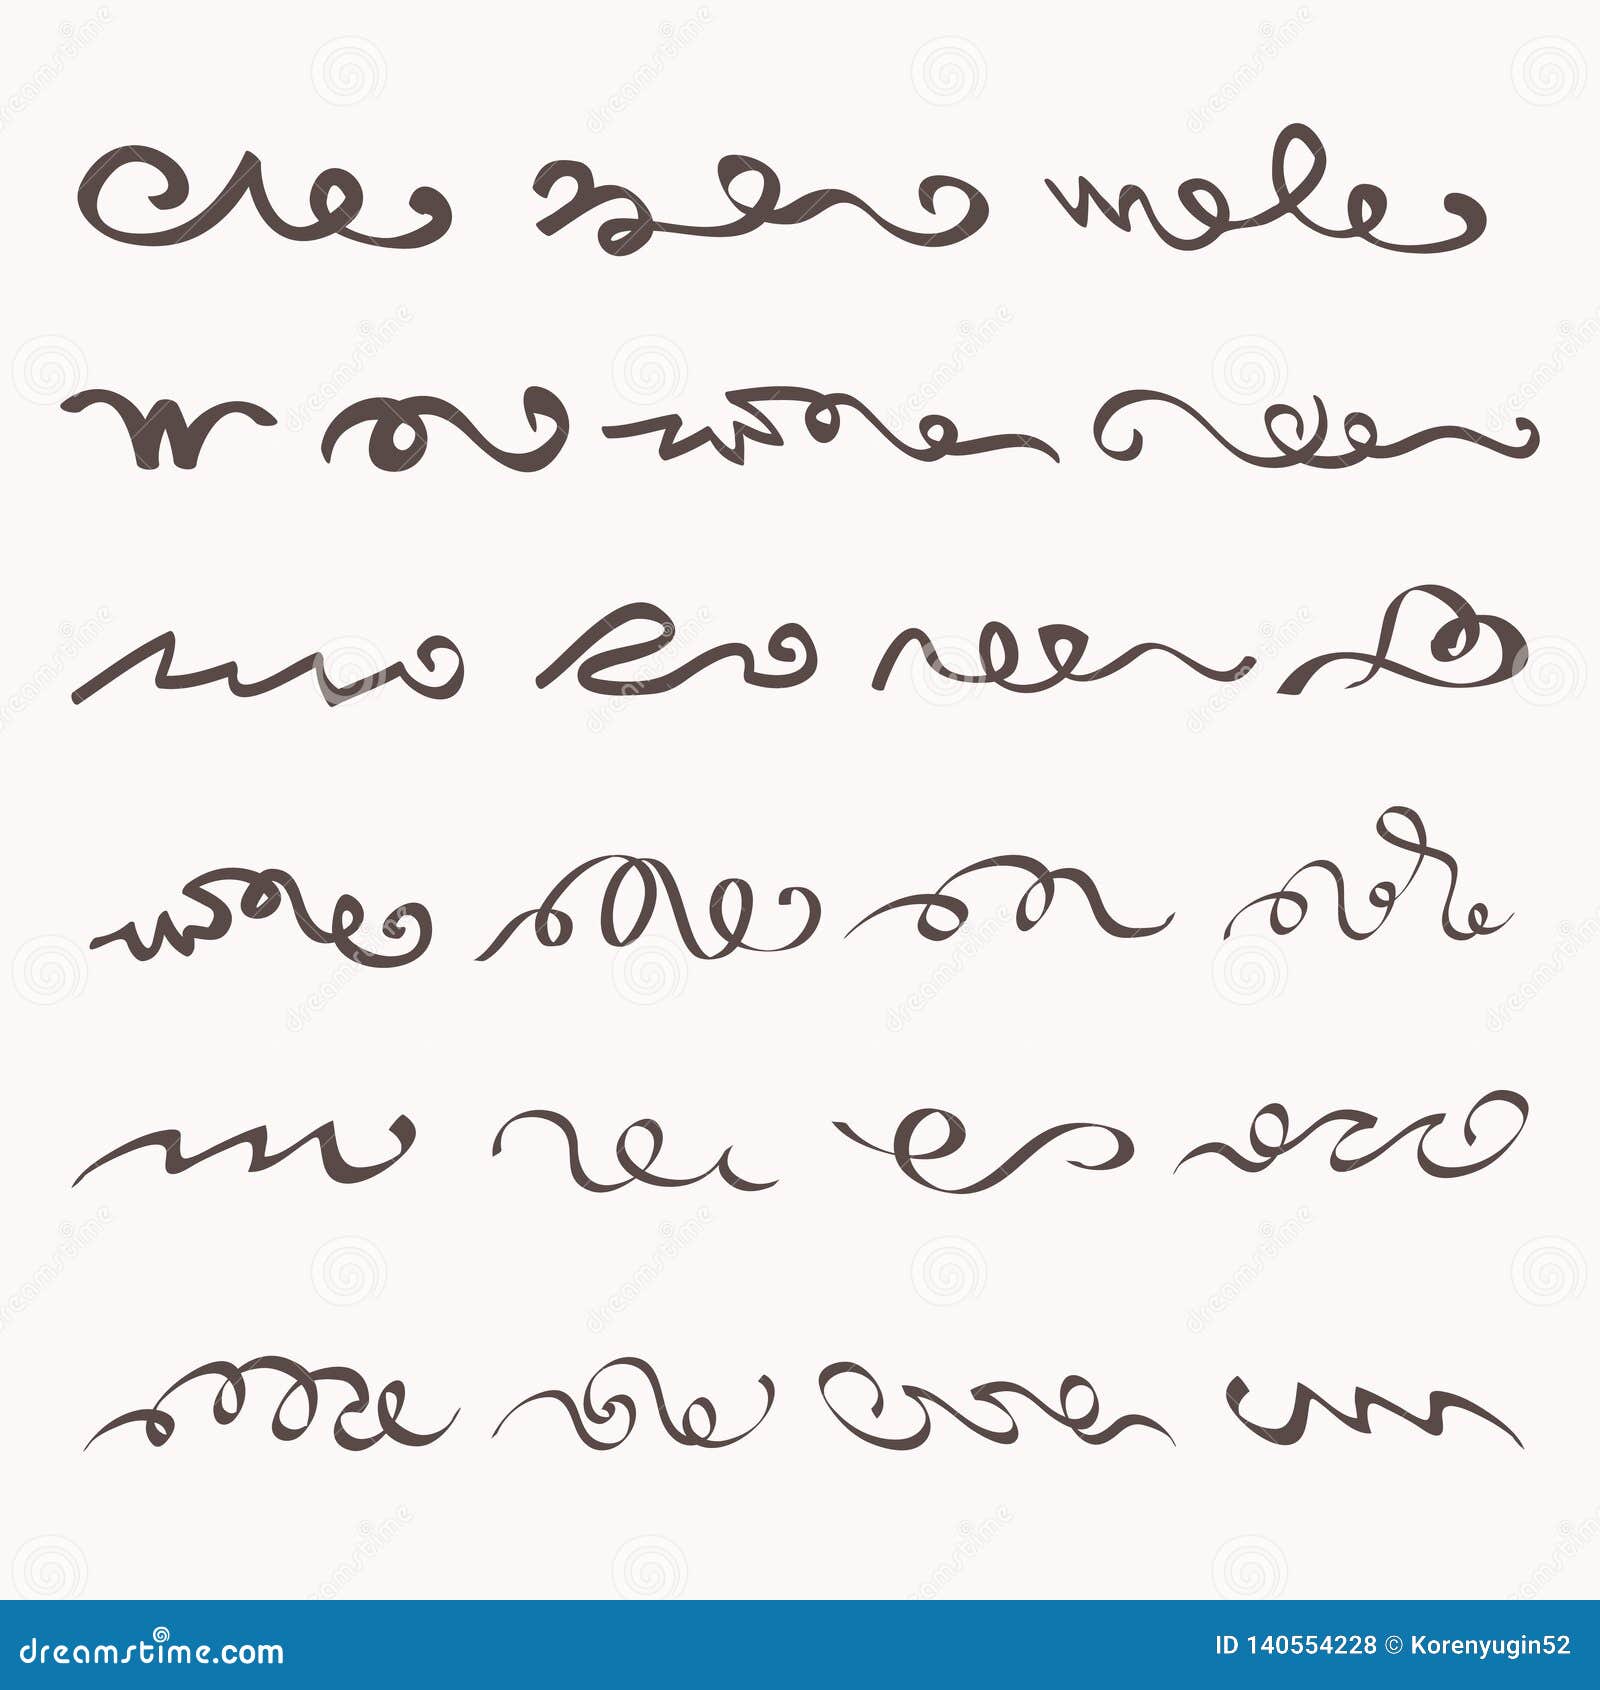 dreamstime.com
ID 140554228 © Korenyugin52